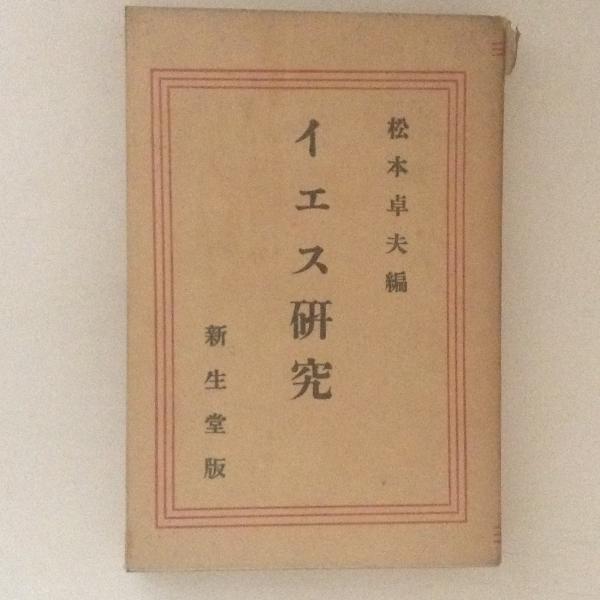 松本卓夫編
イエス研究
新生堂版